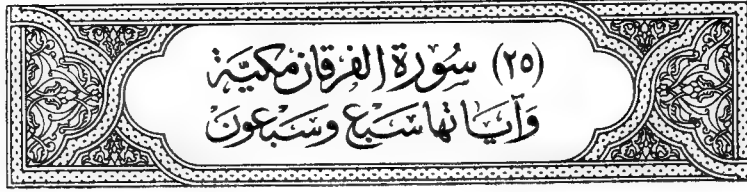 (٢٥) سُورَة الفُرقان مكيّة
وَآيَاتها سَبْع وسَبْعونَ